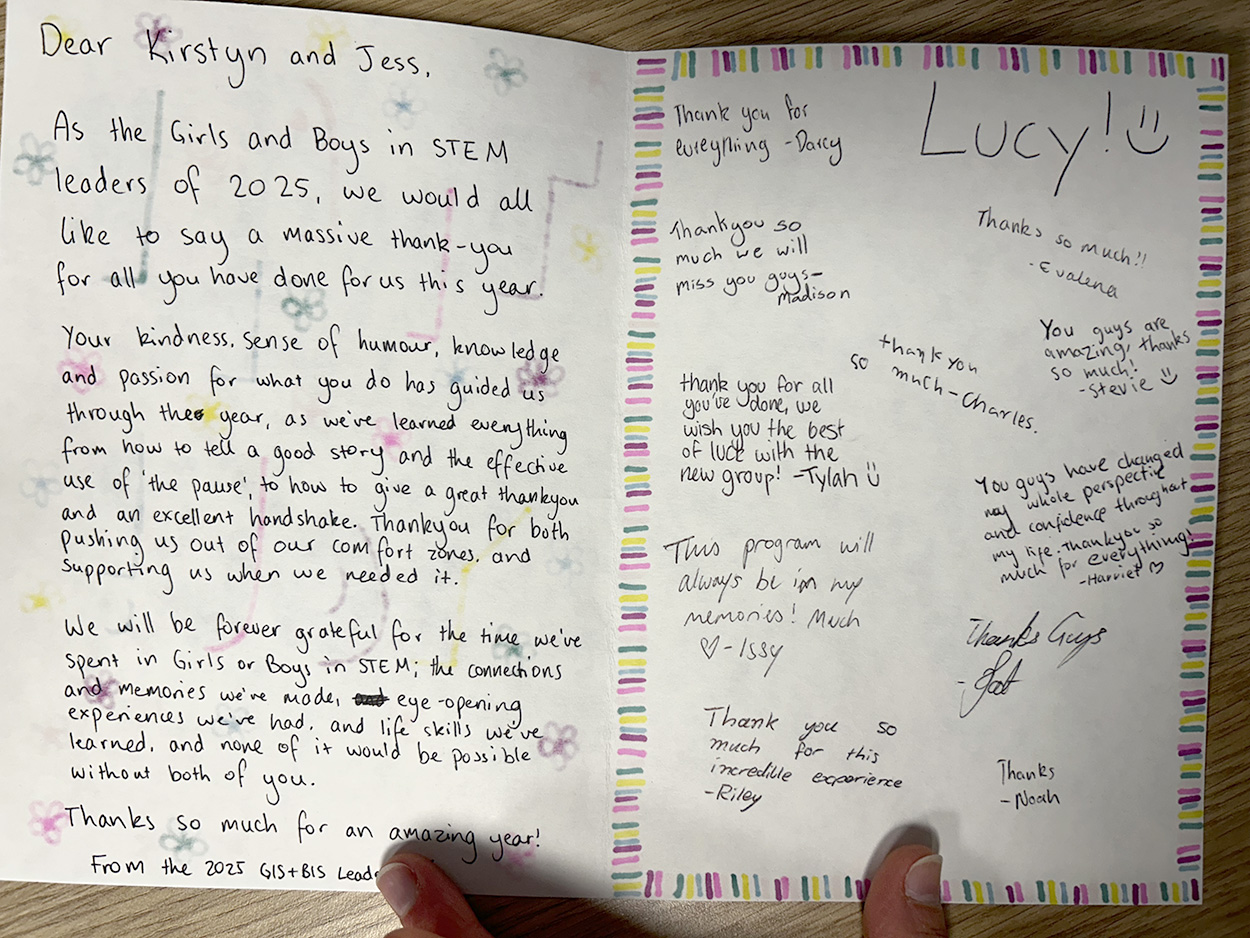 Dear Kirstyn and Jess,
As the Girls and Boys in STEM
leaders of 2025, we would all
like to say a massive thank-you
for all you have done for us this year.
Your kindness, sense of humour, knowledge
and passion for what you do has guided us
through the year, as we've learned everything
from how to tell a good story and the effective
use of 'the pause', to how to give a great thankyou
and an excellent handshake. Thankyou for both
pushing us out of our comfort zones, and
supporting us when we needed it.
We will be forever grateful for the time we've
spent in Girls or Boys in STEM; the connections
and memories we've made, eye-opening
experiences we've had, and life skills we've
learned, and none of it would be possible
without both of you.
Thanks so much for an amazing year!
From the 2025 GIS+BIS Leade
Thank you for
everything -Darcy
Lucy!
Thankyou so
much we will
miss you guys-
Madison
Thanks so much!!
-Evalena
You guys are
amazing, thanks
so much!
-Stevie
thank you
so much-Charles.
thank you for all
you've done, we
wish you the best
of luck with the
new group! -Tylah
You guys have changed
my whole perspective
and confidence throughout
my life. Thankyou so
much for everything!
-Harriet ♡
This program will
always be in my
memories! Much
♡-Issy
Thanks Guys
Thank you so
much for this
incredible experience
-Riley
Thanks
-Noah